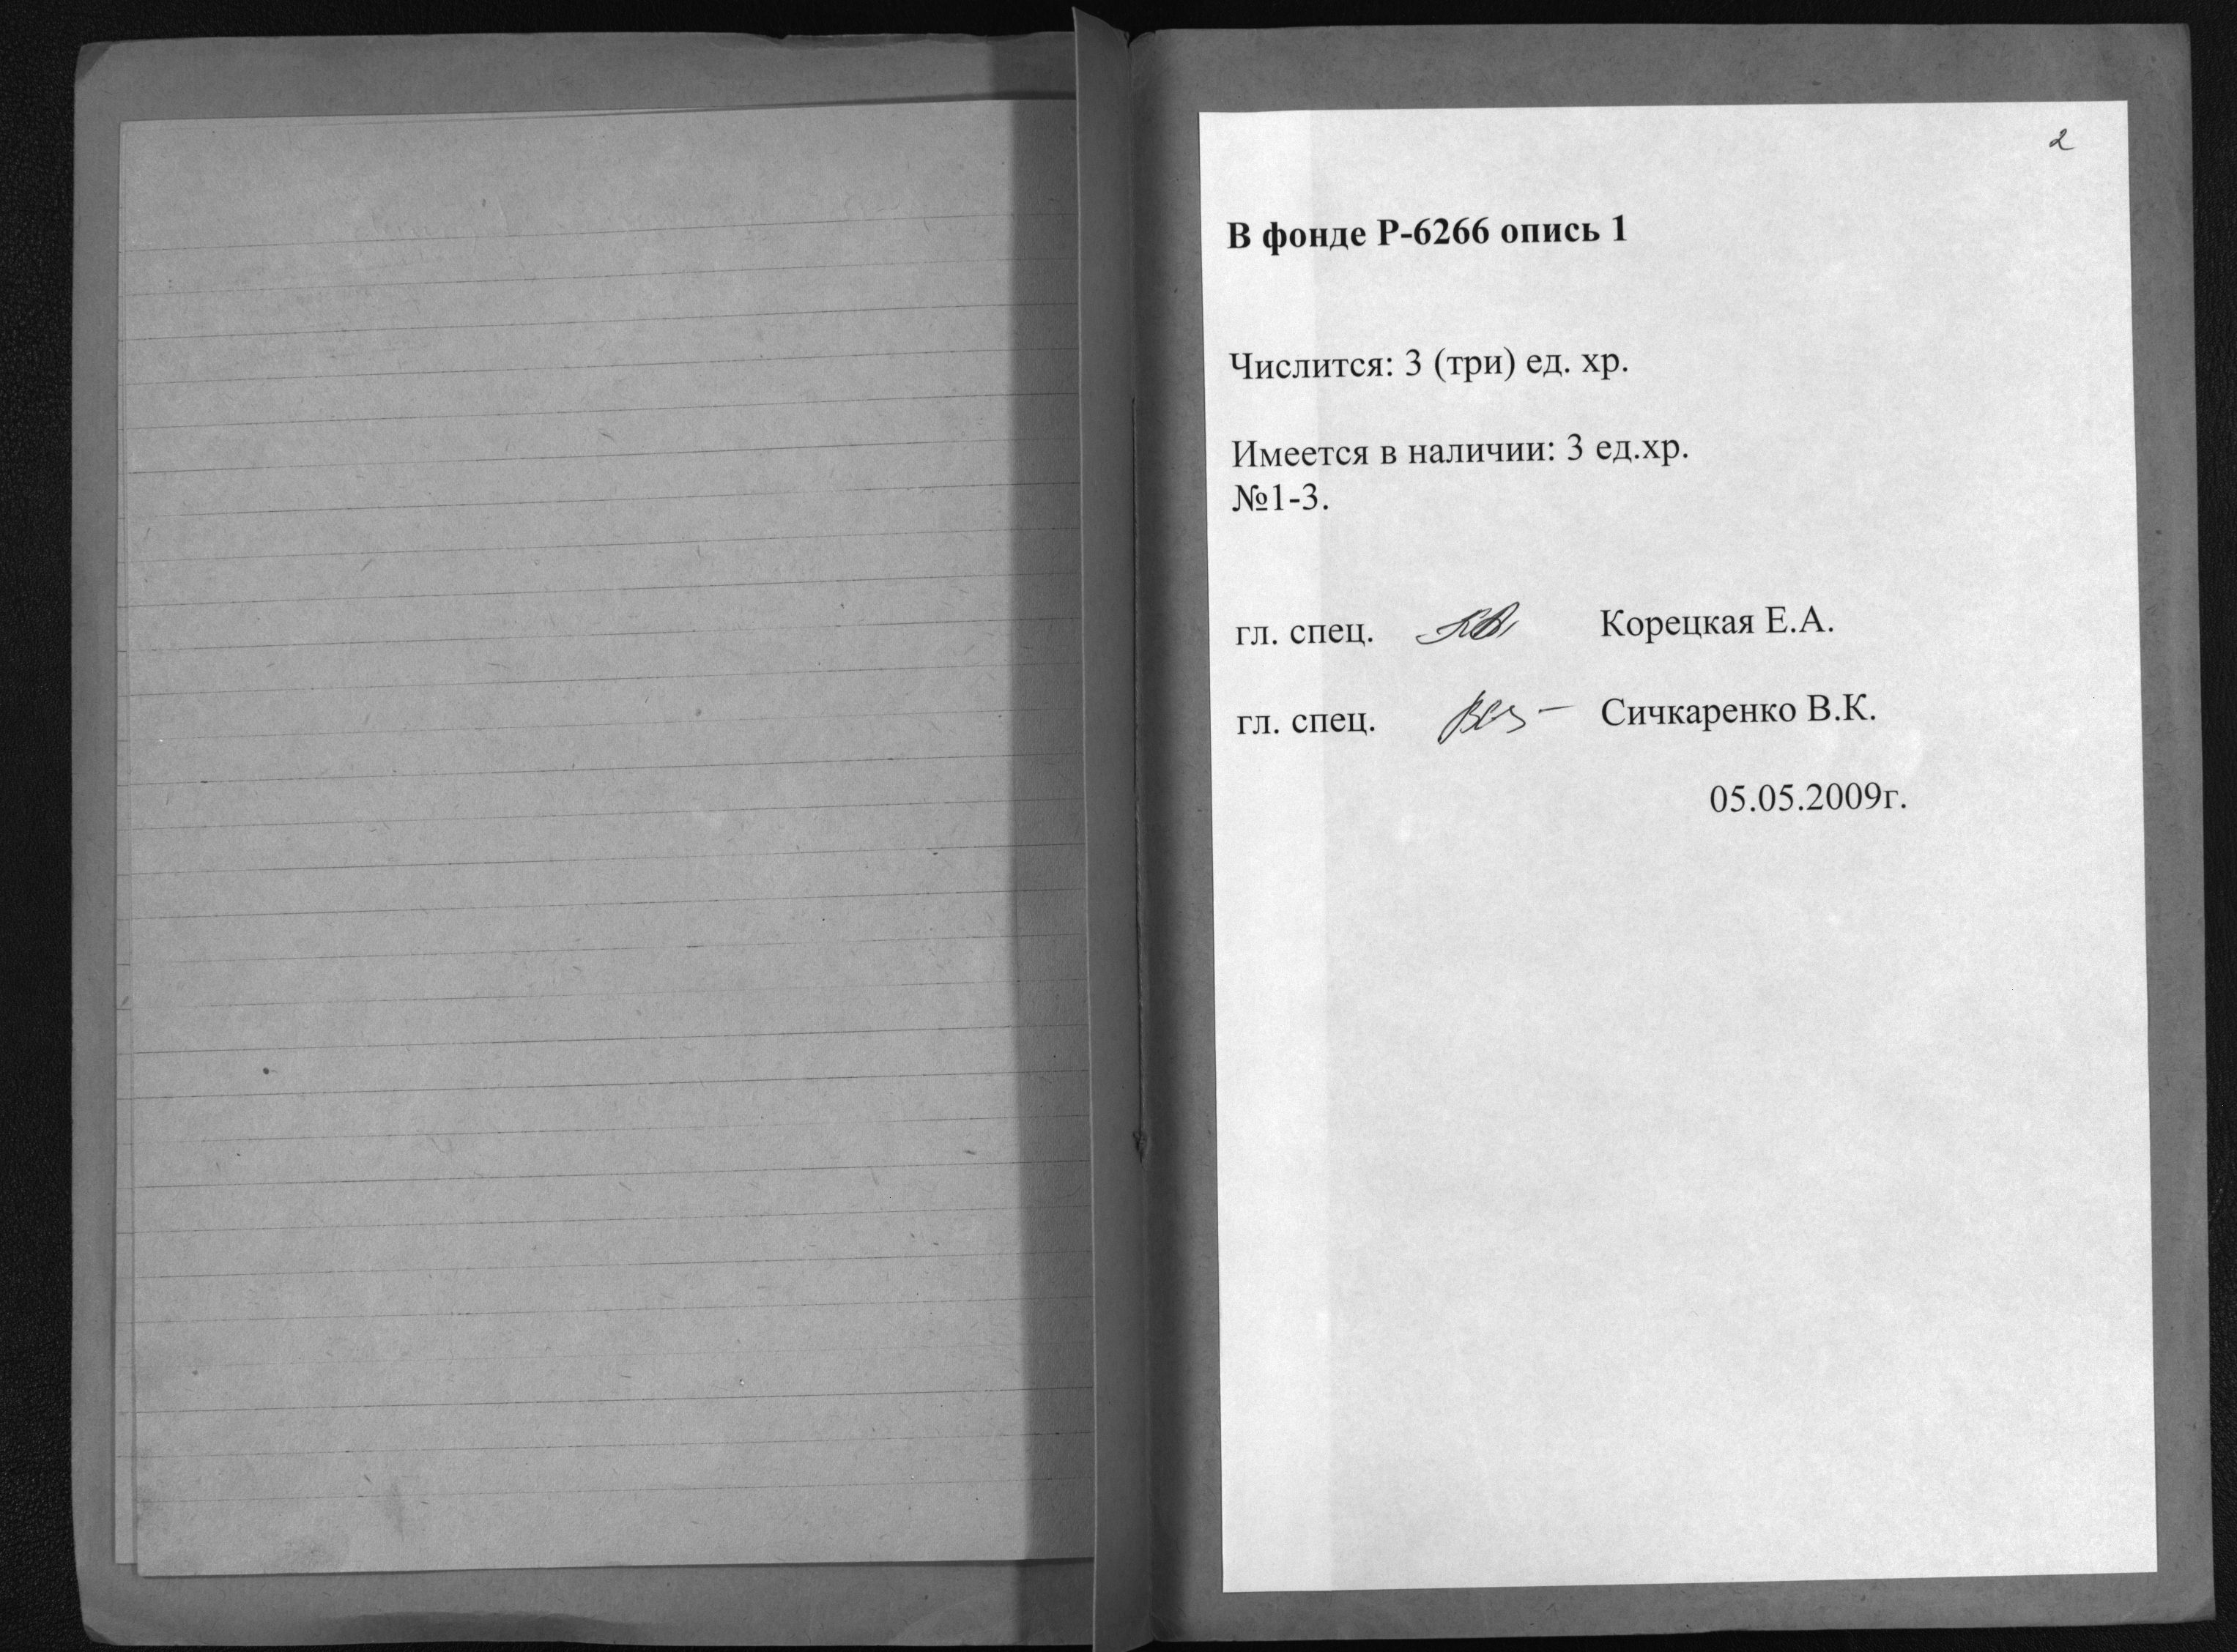 2
В фонде Р-6266 опись 1
Числится: 3 (три) ед. хр.
Имеется в наличии: 3 ед.хр.
№1-3.
гл. спец. Корецкая Е.А.
гл. спец. Сичкаренко В.К.
05.05.2009г.